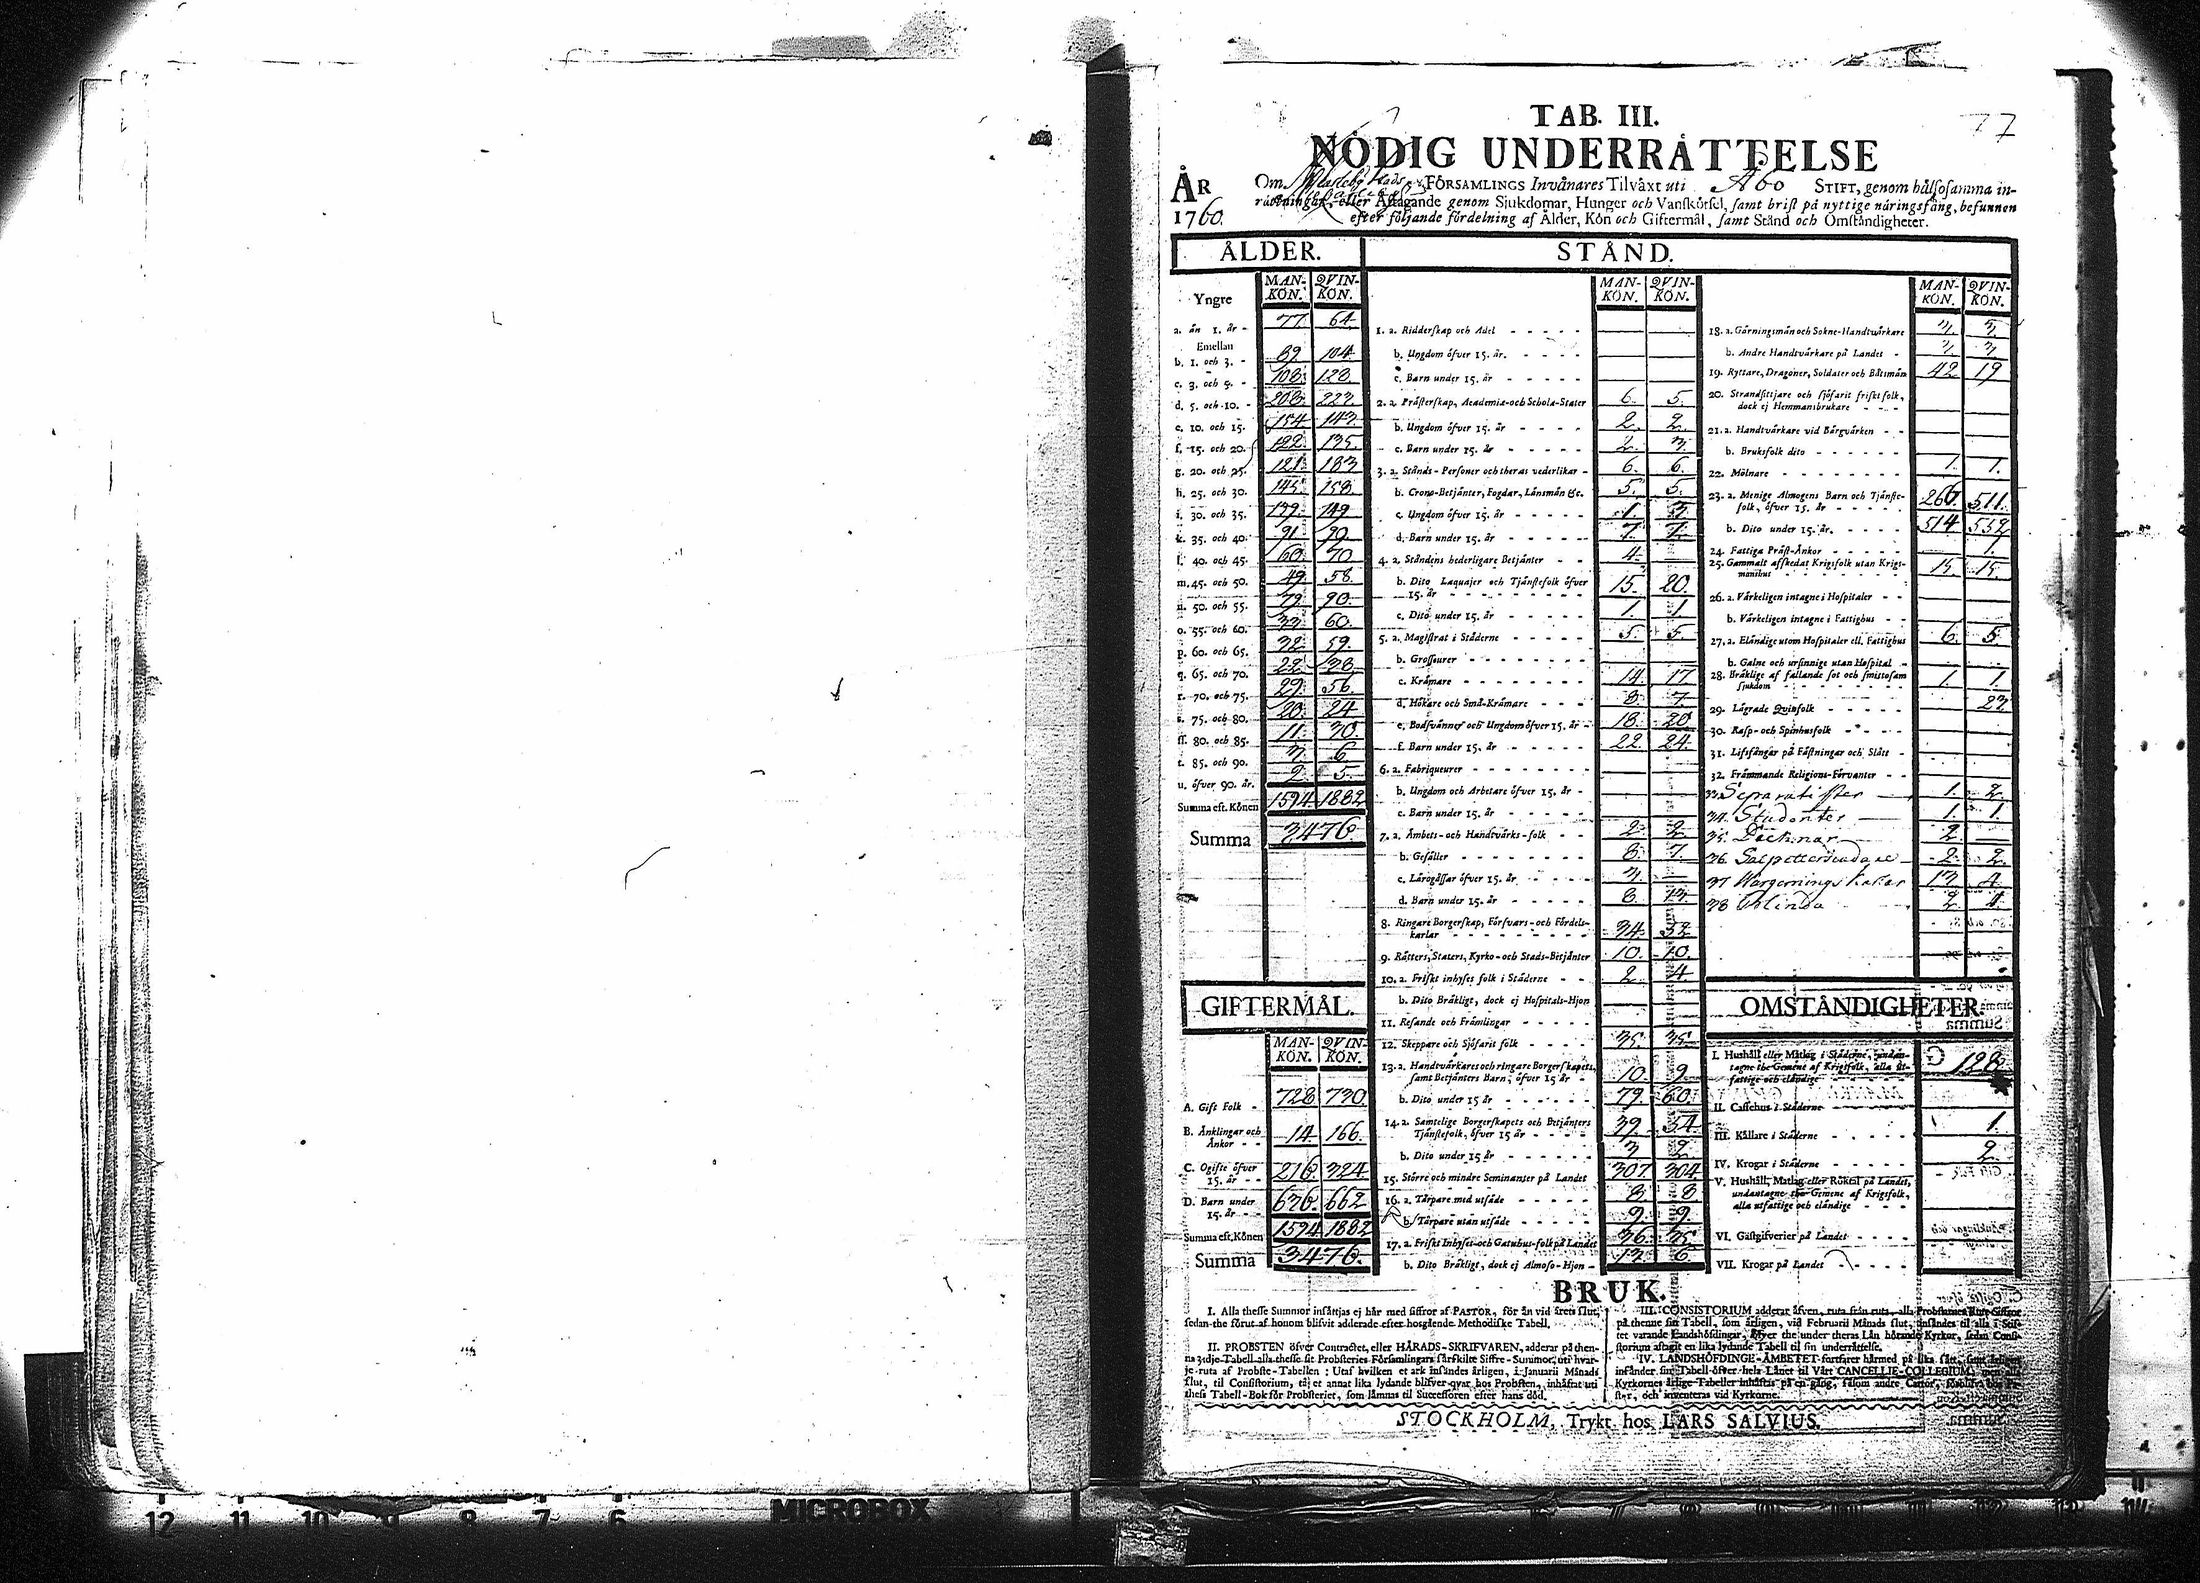 77
TAB. III.
NÖDIG UNDERRÅTTELSE
ÅR 1760.
Om Stads FÖRSAMLINGS Invånares Tilväxt uti Åbo STIFT, genom hålsosamma in-
råttningar, eller Aftagande genom Sjukdomar, Hunger och Vanskötsel, samt brist på nyttige näringsfång, befunnen
efter följande fördelning af Ålder, Kön och Giftermål, samt Stånd och Omståndigheter.
ÅLDER.
MAN-KÖN. QVIN-KÖN.
Yngre
a. än 1. år - 77 64
Emellan
b. 1. och 3. - 89 104
c. 3. och 5. - 108 128
d. 5. och 10. - 208 223
e. 10. och 15. 154 143
f. 15. och 20. 122 135
g. 20. och 25. 121 183
h. 25. och 30. 145 158
i. 30. och 35. 139 149
k. 35. och 40. 91 90
l. 40. och 45. 60 70
m. 45. och 50. 49 58
n. 50. och 55. 79 90
o. 55. och 60. 33 60
p. 60. och 65. 32 59
q. 65. och 70. 22 38
r. 70. och 75. 29 56
s. 75. och 80. 20 24
ss. 80. och 85. 11 30
t. 85. och 90. 3 6
u. öfver 90. år. 2 5
Summa eft. Könen 1594 1882
Summa 3476
GIFTERMÅL.
MAN-KÖN. QVIN-KÖN.
A. Gift Folk - 728 730
B. Änklingar och Änkor - - 14 166
C. Ogifte öfver 15. år - - 216 324
D. Barn under 15. år - - 636 662
Summa eft. Könen 1594 1882
Summa 3476
STÅND.
MAN-KÖN. QVIN-KÖN.
1. a. Ridderskap och Adel
b. Ungdom öfver 15. år.
c. Barn under 15. år
2. a. Prästerskap, Academia- och Schola-Stater 6 5
b. Ungdom öfver 15. år 2 2
c. Barn under 15. år 2 3
3. a. Stånds-Personer och theras vederlikar - 6 6
b. Crono-Betjänter, Fogdar, Länsmän &c. 5 5
c. Ungdom öfver 15. år 1 3
d. Barn under 15. år 7 7
4. a. Ståndens hederligare Betjänter 4
b. Dito Laquajer och Tjänstefolk öfver 15. år 15 20
c. Dito under 15. år 1 1
5. a. Magistrat i Städerne 5 5
b. Grosseurer
c. Krämare 14 17
d. Hökare och Små-Krämare 8 7
e. Bodsvänner och Ungdom öfver 15. år 18 20
f. Barn under 15. år 22 24
6. a. Fabriqueurer
b. Ungdom och Arbetare öfver 15. år
c. Barn under 15. år
7. a. Åmbets- och Handtvärks-folk 2 2
b. Gesäller 8 7
c. Lärogåssar öfver 15. år 3
d. Barn under 15. år 8 13
8. Ringare Borgerskap, Försvars- och Fördels-karlar 34 32
9. Rätters, Staters, Kyrko- och Stads-Betjänter 10 10
10. a. Friskt inhyses folk i Städerne 2 4
b. Dito Bräkligt, dock ej Hospitals-Hjon
11. Resande och Främlingar
12. Skeppare och Sjöfarit folk 35 35
13. a. Handtvärkares och ringare Borgerskapets, samt Betjänters Barn, öfver 15 år 10 9
b. Dito under 15 år 79 60
14. a. Samtelige Borgerskapets och Betjänters Tjänstefolk, öfver 15 år 39 54
b. Dito under 15 år 3 2
15. Större och mindre Hemmanster på Landet 307 304
16. a. Torpare med utsäde 8 8
b. Torpare utan utsäde 9 9
17. a. Friskt Inhyses- och Gatuhus-folk på Landet 36 35
b. Dito Bräkligt, dock ej Almoso-Hjon - 13 6
MAN-KÖN. QVIN-KÖN.
18. a. Gärningsmän och Sokne-Handtvärkare 3 3
b. Andre Handtvärkare på Landet 3 3
19. Ryttare, Dragoner, Soldater och Båtsmän 42 19
20. Strandsittjare och sjöfarit friskt folk, dock ej Hemmansbrukare
21. a. Handtvärkare vid Bärgvärken
b. Bruksfolk dito
22. Mölnare 1 1
23. a. Menige Almogens Barn och Tjänstefolk, öfver 15. år 511
b. Dito under 15. år. 514 552
24. Fattiga Präst-Änkor 1
25. Gammalt afskedat Krigsfolk utan Krigsmanshus 15 15
26. a. Värkeligen intagne i Hospitaler
b. Värkeligen intagne i Fattighus
27. a. Eländige utom Hospitaler ell. Fattighus 6 5
b. Galne och ursinnige utan Hospital
28. Bräklige af fallande sot och smittosam sjukdom 1 1
29. Lägrade Qvinfolk 23
30. Rasp- och Spinhusfolk
31. Lifsfångar på Fästningar och Slått
32. Främmande Religions-Förvanter
33. Separatister 1 2
34. Studenter 1 1
35. 2
36. Salpettersiudare 2 2
37 13 4
38 Blinda 2 1
OMSTÅNDIGHETER.
I. Hushåll eller Matlag i Städerne, undantagne the Gemene af Krigsfolk, alla utfattige och eländige 128
II. Caffehus i Städerne
III. Källare i Städerne 1
IV. Krogar i Städerne 2
V. Hushåll, Matlag eller Röktal på Landet, undantagne the Gemene af Krigsfolk, alla utfattige och eländige
VI. Gästgifverier på Landet
VII. Krogar på Landet
BRUK.
I. Alla thesse Summor insättjas ej här med siffror af PASTOR, för än vid årets slut,
sedan the förut af honom blifvit adderade efter hosgående Methodiske Tabell.
II. PROBSTEN öfver Contractet, eller HÄRADS-SKRIFVAREN, adderar på then-
na 3:dje Tabell alla thesse sit Probsteries Församlingars särskilte Siffre-Summor, uti hvar-
je ruta af Probste-Tabellen; Utaf hvilken et ark insändes årligen, i Januarii Månads
slut, til Consistorium, tå et annat lika lydande blifver qvar hos Probsten, inhäftat uti
thess Tabell-Bok för Probsteriet, som lämnas til Successoren efter hans död.
III. CONSISTORIUM adderar äfven, ruta från ruta, alla Probstarnes
på thenne sin Tabell, som årligen, vid Februarii Månads slut, insändes til alla i Stif-
tet varande Landshöfdingar, öfver the under theras Län hörande Kyrkor, sedan Consi-
storium aftagit en lika lydande Tabell til sin underrättelse.
IV. LANDSHÖFDINGE-ÅMBETET fortfarer härmed på lika sätt,
insänder sin Tabell öfver hela Länet til Vårt CANCELLIE-COLLEGIUM;
Kyrkornes årlige Tabeller inhäftas på en gång, såsom andre
ster, och inventeras vid Kyrkorne.
STOCKHOLM, Trykt hos LARS SALVIUS.
MICROBOX
12 11 10 9 8 7 6